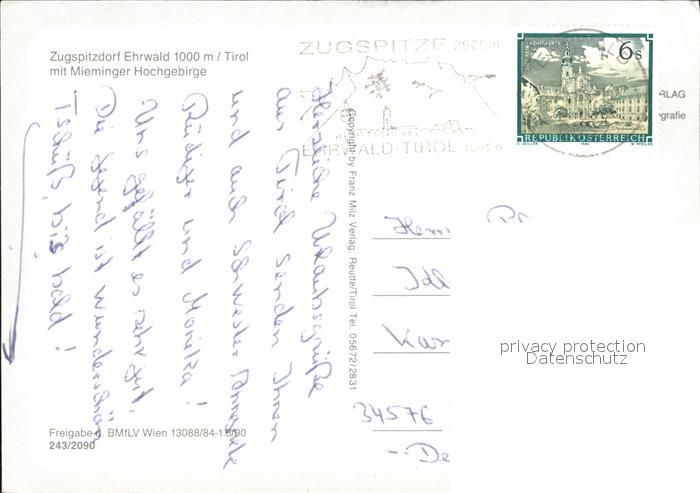 Zugspitzdorf Ehrwald 1000 m / Tirol
mit Mieminger Hochgebirge
ZUGSPITZE 2966m
EHRWALD-TIROL 1000m
6s
REPUBLIK ÖSTERREICH
RLAG
grafie
Herzliche Urlaubsgrüße
aus Tirol senden Ihnen
und auch Schwester
Rüdiger und Monika!
Uns gefällt es sehr gut.
Die Gegend ist wunderschön
Tschüß, bis bald!
Copyright by Franz Milz Verlag, Reutte/Tirol Tel. 05672/2831
34576
privacy protection
Datenschutz
Freigabe d. BMfLV Wien 13088/84-1.6/90
243/2090